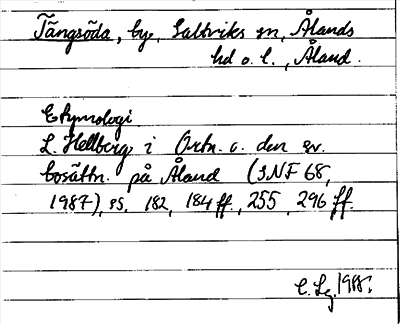 Tängsöda, by, Saltviks sn, Ålands
hd o. l., Åland.
Etymologi
L. Hellberg i Ortn. o. den sv.
bosättn. på Åland (SNF 68,
1987), ss. 182, 184 ff., 255, 296 ff.
C. Lg. 1988.